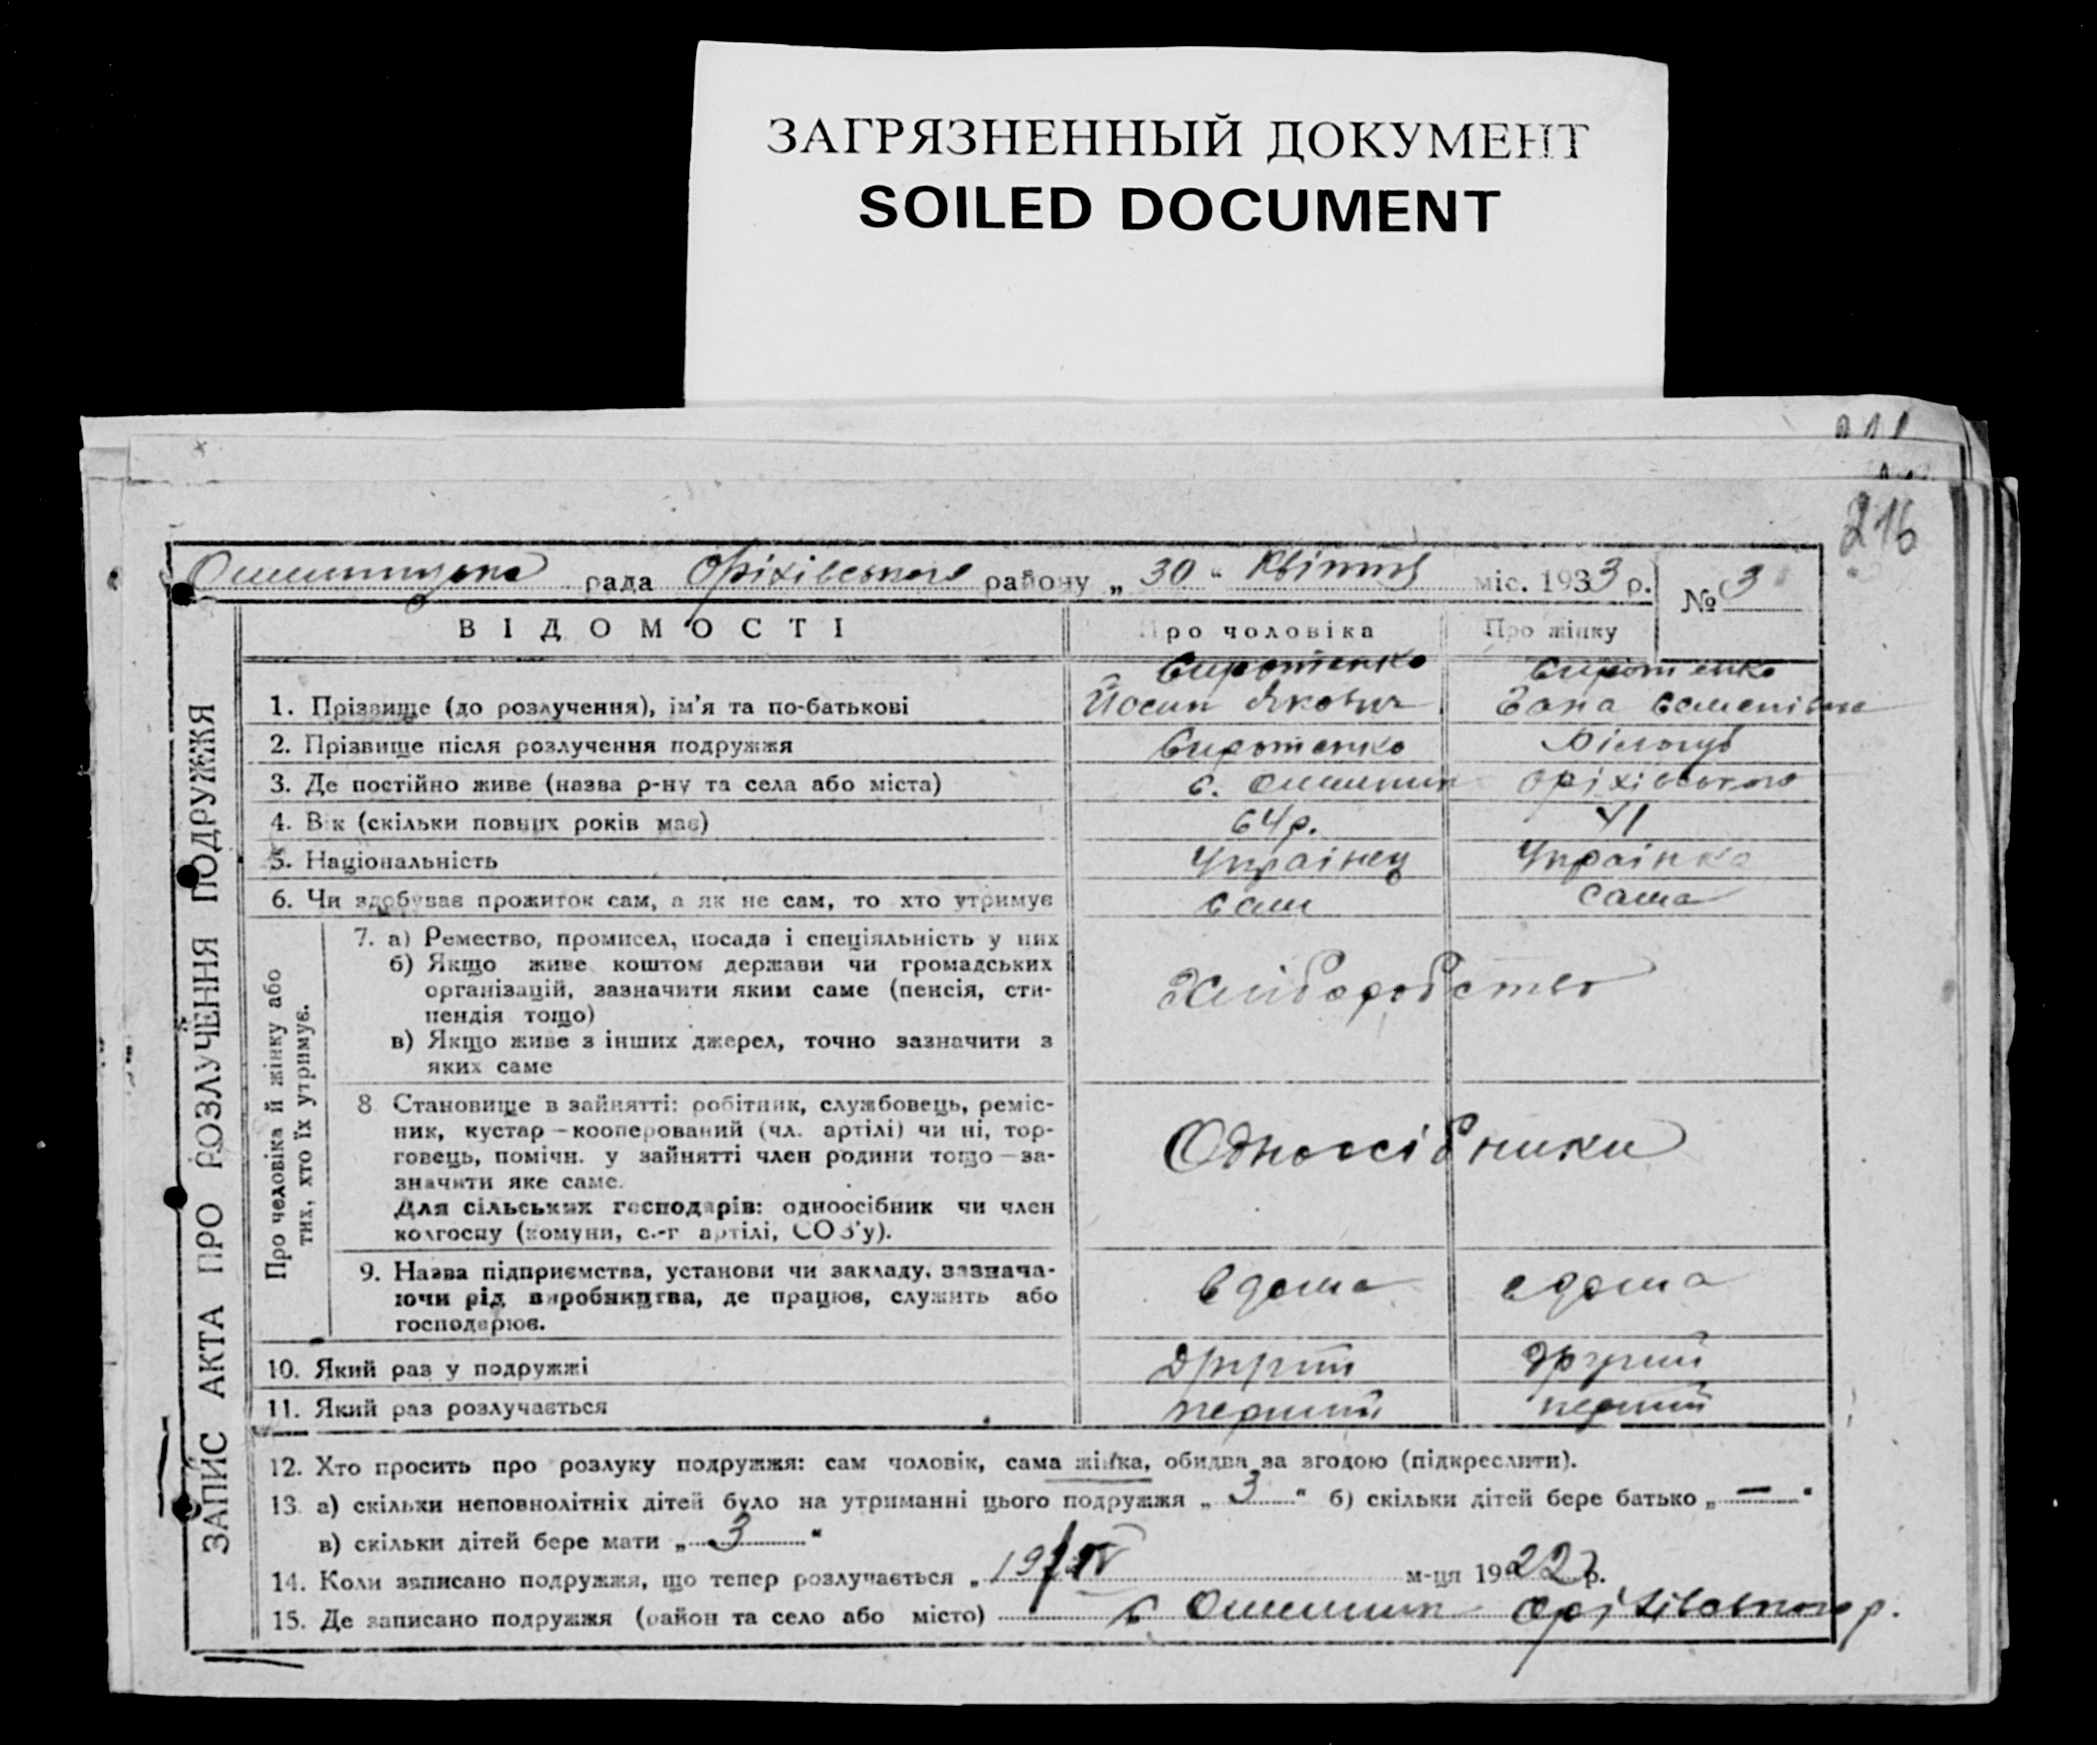 ЗАГРЯЗНЕННЫЙ ДОКУМЕНТ
SOILED DOCUMENT
216
рада Оріхівського району „ 30 “ Квітня міс. 1933 р. № 3
ЗАПИС АКТА ПРО РОЗЛУЧЕННЯ ПОДРУЖЖЯ
ВІДОМОСТІ Про чоловіка Про жінку
Сиротенко Сиротенко
1. Прізвище (до розлучення), ім'я та по-батькові Йосип Якович Семенівна
2. Прізвище після розлучення подружжя Сиротенко Білогуб
3. Де постійно живе (назва р-ну та села або міста) с. Омельник Оріхівського
4. Вік (скільки повних років має) 64 р. 41
5. Національність Українец Українка
6. Чи здобував прожиток сам, а як не сам, то хто утримує сам сама
Про чоловіка й жінку або тих, хто їх утримує.
7. а) Ремество, промисел, посада і спеціяльність у них
б) Якщо живе коштом держави чи громадських
організацій, зазначити яким саме (пенсія, сти-
пендія тощо)
Хліборобство
в) Якщо живе з інших джерел, точно зазначити з
яких саме
8 Становище в зайнятті: робітник, службовець, реміс-
ник, кустар—кооперований (чл. артілі) чи ні, тор-
говець, помічн. у зайнятті член родини тощо—за-
значити яке саме.
Одноосібники
Для сільських господарів: одноосібник чи член
колгоспу (комуни, с.-г артілі, СОЗ'у).
9. Назва підприємства, установи чи закладу, зазнача-
ючи рід виробництва, де працює, служить або
господарює.
вдома вдома
10. Який раз у подружжі другий другий
11. Який раз розлучається перший перший
12. Хто просить про розлуку подружжя: сам чоловік, сама жінка, обидва за згодою (підкреслити).
13. а) скільки неповнолітніх дітей було на утриманні цього подружжя „ 3 “ б) скільки дітей бере батько „ — “
в) скільки дітей бере мати „ 3 “
14. Коли записано подружжя, що тепер розлучається „ 19/IV м-ця 1922 р.
15. Де записано подружжя (район та село або місто) с. Омельник Оріхівського р.